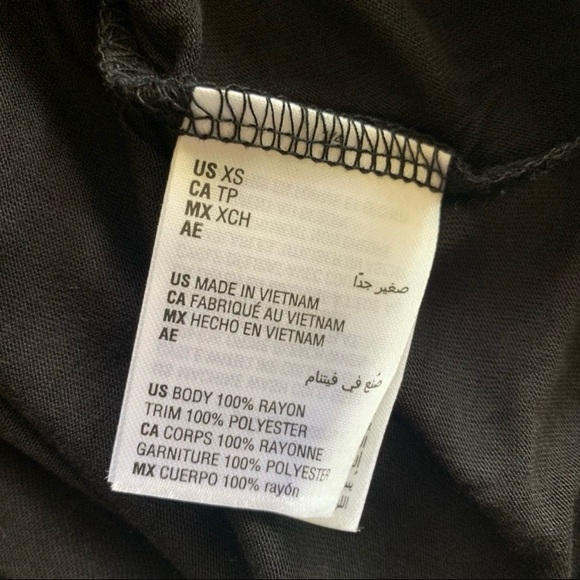 US XS
CA TP
MX XCH
AE
صغير جدًا
US MADE IN VIETNAM
CA FABRIQUÉ AU VIETNAM
MX HECHO EN VIETNAM
AE
صُنع في فيتنام
US BODY 100% RAYON
TRIM 100% POLYESTER
CA CORPS 100% RAYONNE
GARNITURE 100% POLYESTER
MX CUERPO 100% rayón